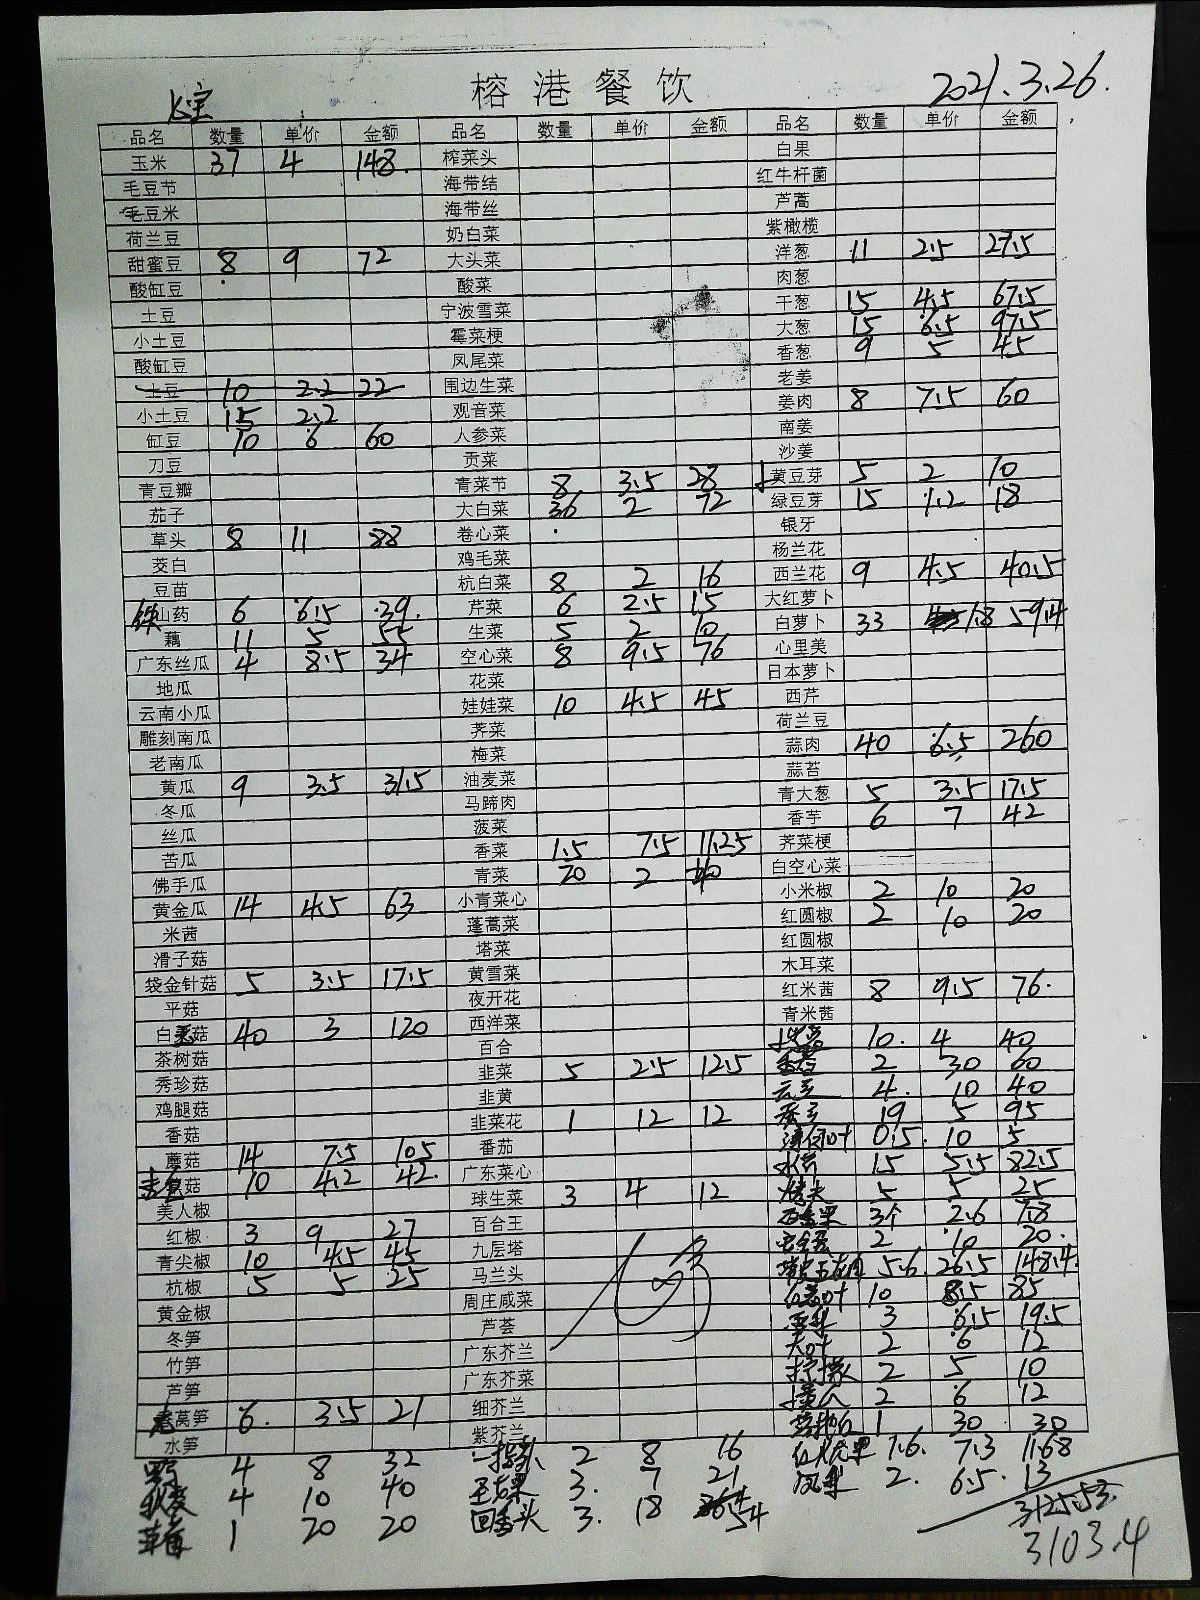 榕港餐饮
2021.3.26.
品名 数量 单价 金额 品名 数量 单价 金额 品名 数量 单价 金额
玉米 37 4 148. 榨菜头 白果
毛豆节 海带结 红牛杆菌
毛豆米 海带丝 芦蒿
荷兰豆 奶白菜 紫橄榄
甜蜜豆 8 9 72 大头菜 洋葱 11 2.5 27.5
酸缸豆 酸菜 肉葱
土豆 宁波雪菜 干葱 15 4.5 67.5
小土豆 霉菜梗 大葱 15 6.5 97.5
酸缸豆 凤尾菜 香葱 9 5 45
土豆 10 2.2 22 围边生菜 老姜
小土豆 15 2.2 观音菜 姜肉 8 7.5 60
缸豆 10 6 60 人参菜 南姜
刀豆 贡菜 沙姜
青豆瓣 青菜节 8 3.5 28 黄豆芽 5 2 10
茄子 大白菜 36 2 72 绿豆芽 15 1.2 18
草头 8 11 88 卷心菜 银牙
茭白 鸡毛菜 杨兰花
豆苗 杭白菜 8 2 16 西兰花 9 4.5 40.5
铁山药 6 6.5 39. 芹菜 6 2.5 15 大红萝卜
藕 11 5 55 生菜 5 2 10 白萝卜 33 1.8 59.4
广东丝瓜 4 8.5 34 空心菜 8 9.5 76 心里美
地瓜 花菜 日本萝卜
云南小瓜 娃娃菜 10 4.5 45 西芹
雕刻南瓜 荠菜 荷兰豆
老南瓜 梅菜 蒜肉 40 6.5 260
黄瓜 9 3.5 31.5 油麦菜 蒜苔
冬瓜 马蹄肉 青大葱 5 3.5 17.5
丝瓜 菠菜 香芋 6 7 42
苦瓜 香菜 1.5 7.5 11.25 荠菜梗
佛手瓜 青菜 20 2 40 白空心菜
黄金瓜 14 4.5 63 小青菜心 小米椒 2 10 20
米茜 蓬蒿菜 红圆椒 2 10 20
滑子菇 塔菜 红圆椒
袋金针菇 5 3.5 17.5 黄雪菜 木耳菜
平菇 夜开花 红米茜 8 9.5 76.
白玉菇 40 3 120 西洋菜 青米茜
茶树菇 百合 10. 4 40
秀珍菇 韭菜 5 2.5 12.5 2 30 60
鸡腿菇 韭黄 4. 10 40
香菇 韭菜花 1 12 12 19 5 95
蘑菇 14 7.5 105 番茄 薄荷叶 0.5. 10 5
菇 10 4.2 42. 广东菜心 15 5.5 82.5
美人椒 球生菜 3 4 12 烤夫 5 5 25
红椒 3 9 27 百合王 百香果 3个 2.6 7.8
青尖椒 10 4.5 45 九层塔 2 10 20.
杭椒 5 5 25 马兰头 5.6. 26.5 148.4
黄金椒 周庄咸菜 10 8.5 85
冬笋 芦荟 雪梨 3 6.5 19.5
竹笋 广东芥兰 大叶 2 6 12
芦笋 广东芥菜 2 5 10
莴笋 6. 3.5 21 细芥兰 2 6 12
水笋 紫芥兰 1 30 30
4 8 32 2 8 16 红火龙果 1.6. 7.3 11.68
秋葵 4 10 40 3. 7 21 凤梨 2. 6.5. 13
草莓 1 20 20 回香头 3. 18 54
3125.53.
3103.4